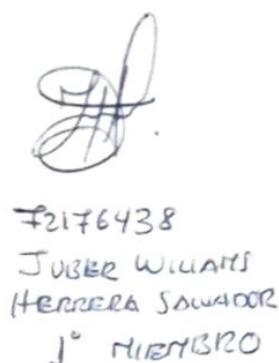 72176438
JUBER WILLIAMS
HERRERA SALVADOR
1° MIEMBRO